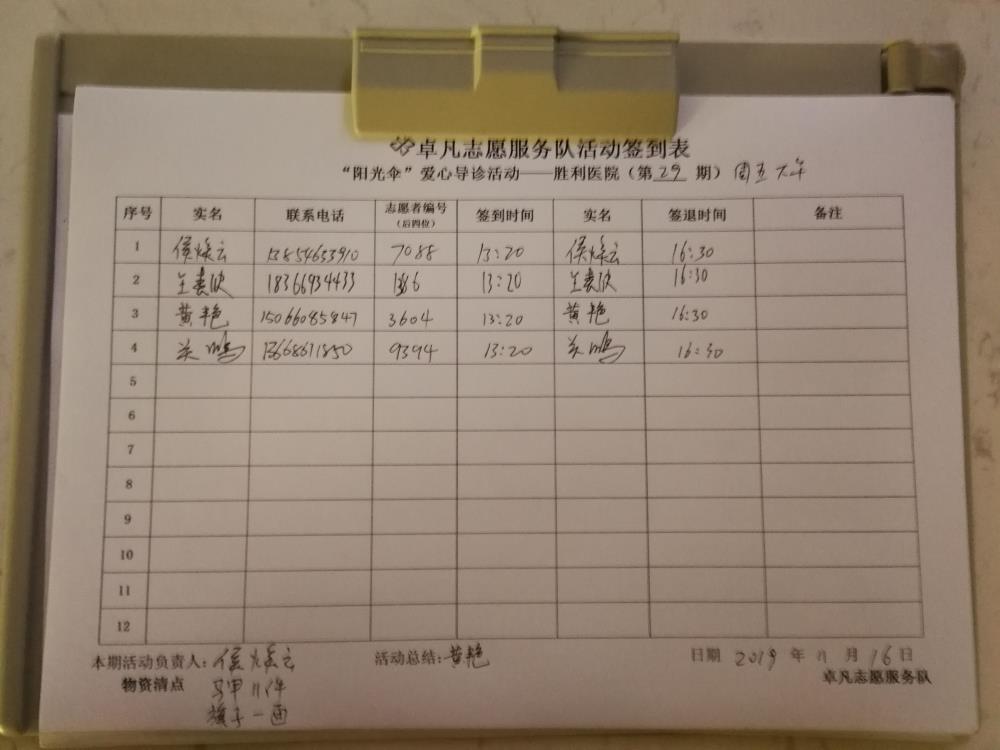 卓凡志愿服务队活动签到表
“阳光伞”爱心导诊活动——胜利医院（第29期）周五下午
序号 实名 联系电话 志愿者编号（后四位） 签到时间 实名 签退时间 备注
1 侯焕云 13854633910 7088 13:20 侯焕云 16:30
2 18366934433 1366 13:20 16:30
3 黄艳 15066085847 3604 13:20 黄艳 16:30
4 关鹏 13668671850 9394 13:20 关鹏 16:30
5
6
7
8
9
10
11
12
本期活动负责人：侯焕云 活动总结：黄艳 日期 2019 年 11 月 16 日
物资清点 马甲11件 卓凡志愿服务队
旗子一面